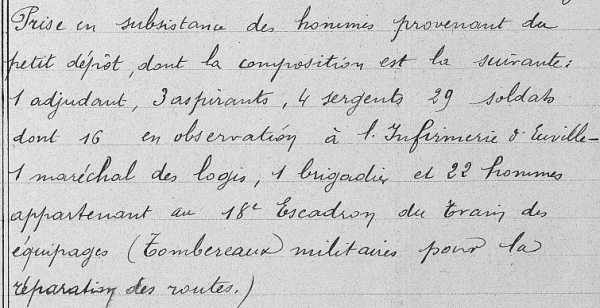 Prise en subsistance des hommes provenant du
petit dépôt, dont la composition est la suivante:
1 adjudant, 3 aspirants, 4 sergents 29 soldats
dont 16 en observation à l'Infirmerie d'Euville-
1 maréchal des logis, 1 brigadier et 22 hommes
appartenant au 18e Escadron du Train des
équipages (Tombereaux militaires pour la
réparation des routes.)